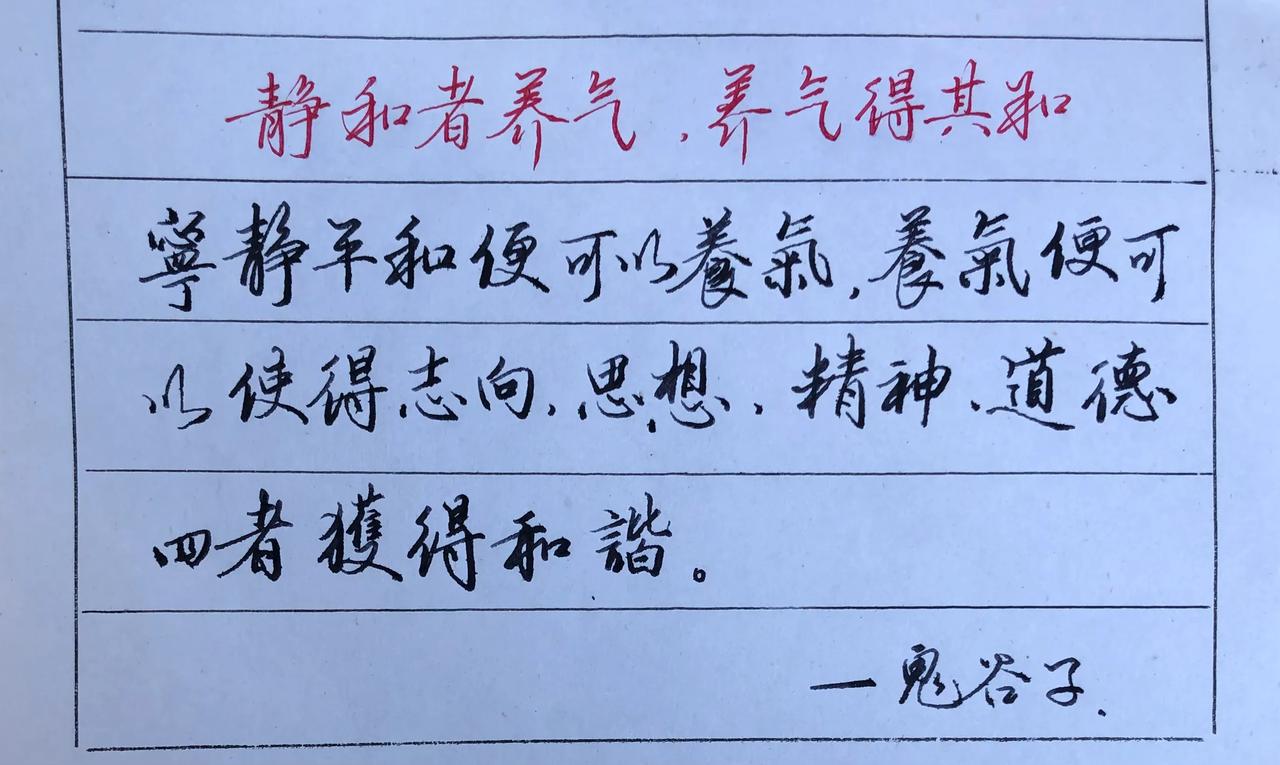 静和者养气,养气得其和
寧静平和便可以養氣,養氣便可
以使得志向、思想、精神、道德
四者獲得和諧。
—鬼谷子.